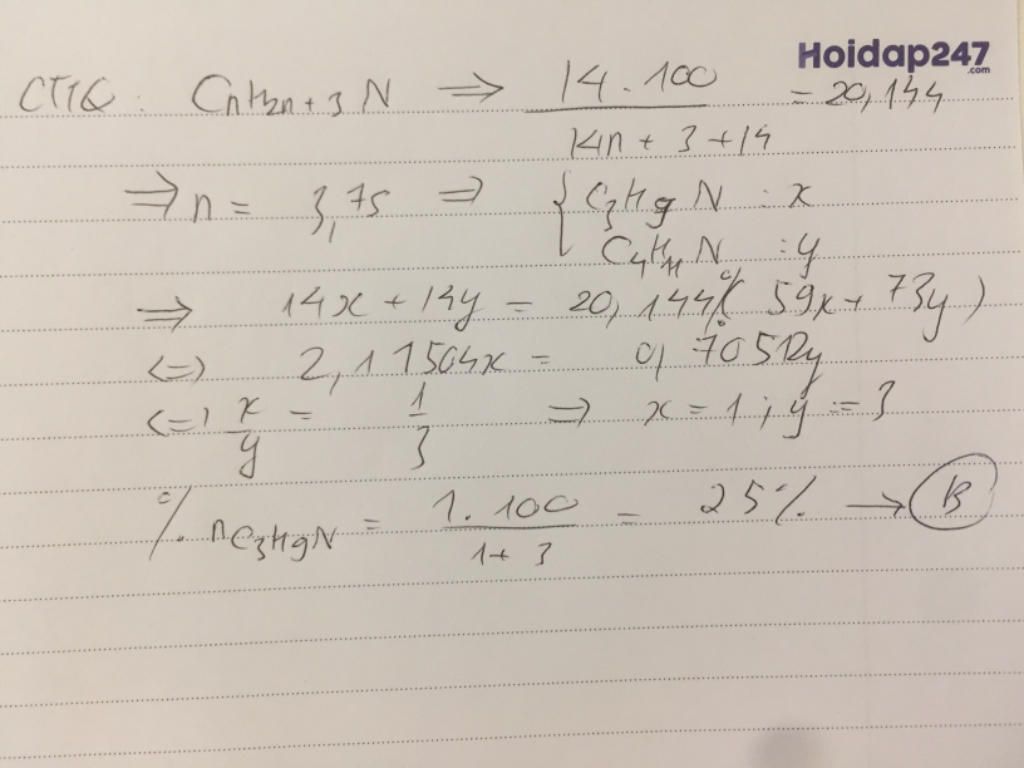 Hoidap247
.com
CTTQ : CnH2n+3N ⇒ 14.100 / 14n + 3 + 14 = 20,144
⇒ n = 3,75 ⇒ { C3H9N : x
C4H11N : y
⇒ 14x + 14y = 20,144% (59x + 73y)
<=> 2,11504x = 0,70512y
<=> x/y = 1/3 ⇒ x = 1 ; y = 3
% nC3H9N = 1.100 / 1+3 = 25% → B